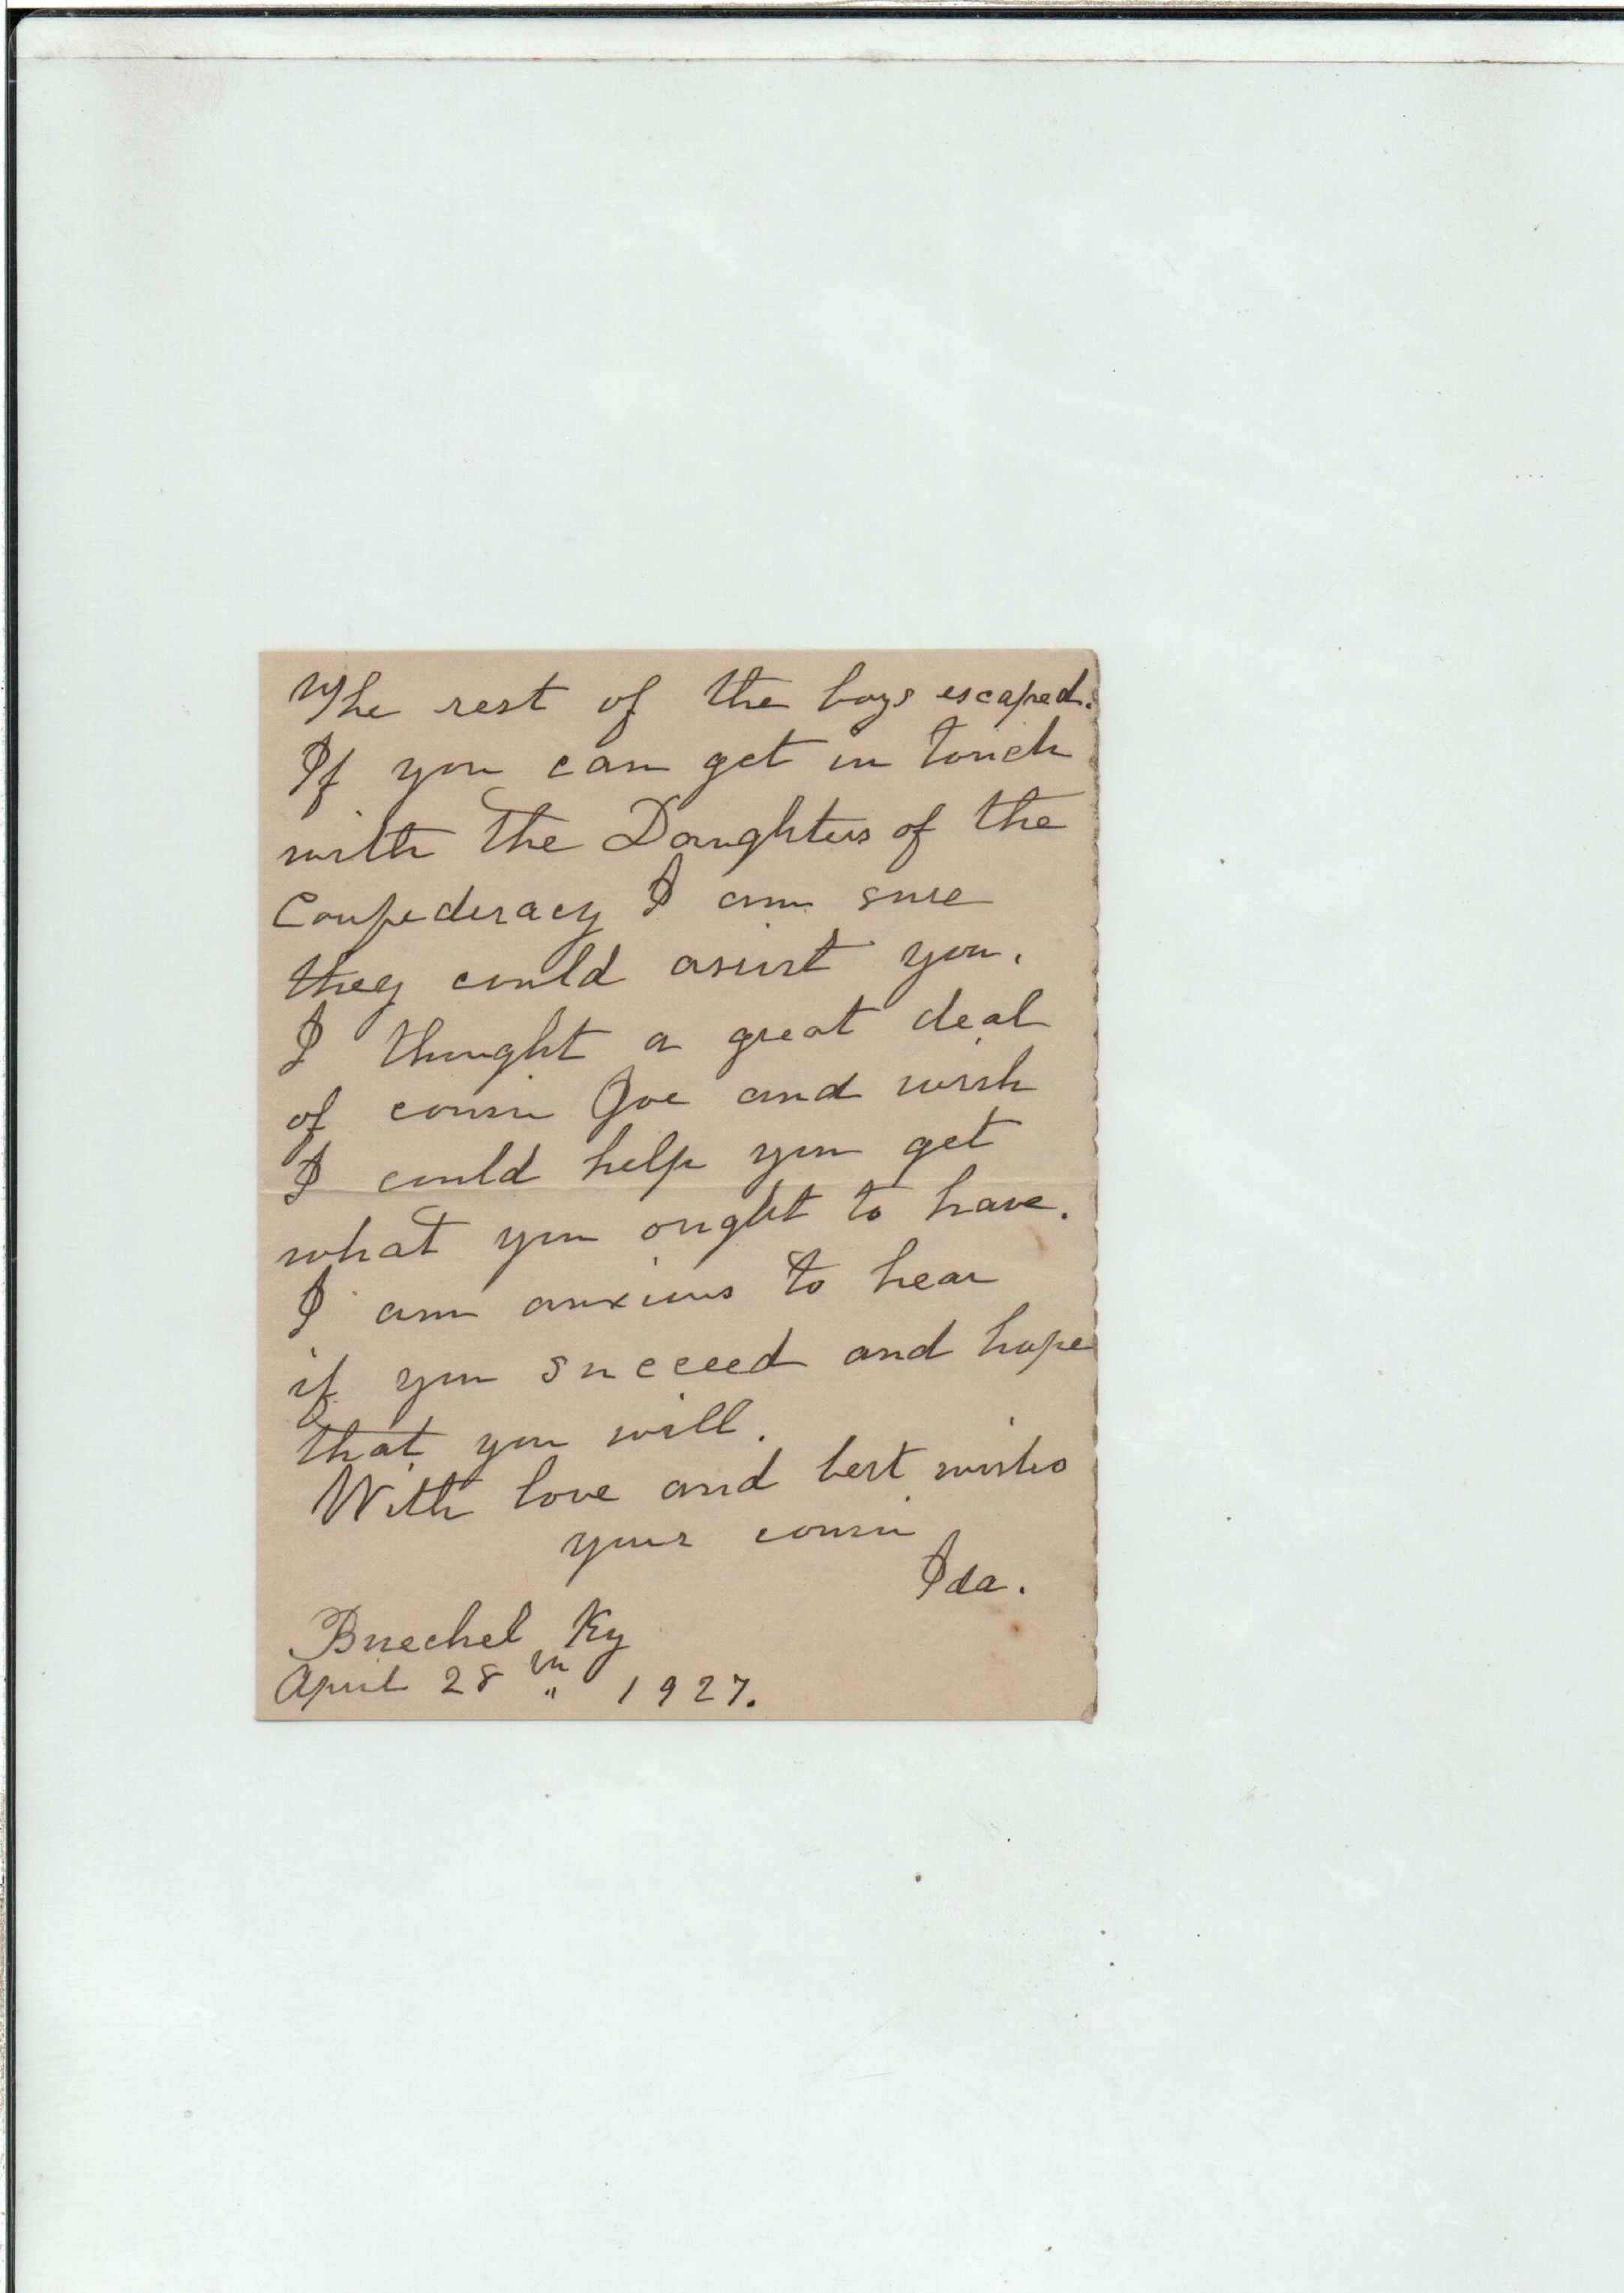 The rest of the boys escaped.
If you can get in touch
with the Daughters of the
Confederacy I am sure
they could assist you.
I thought a great deal
of cousin Joe and wish
I could help you get
what you ought to have.
I am anxious to hear
if you succeed and hope
that you will.
With love and best wishes
your cousin
Ida.
Buechel Ky
April 28th 1927.